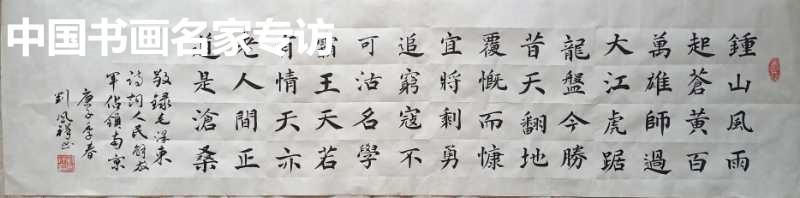 中国书画名家专访
鍾山風雨
起蒼黃百
萬雄師過
大江虎踞
龍盤今勝
昔天翻地
覆慨而慷
宜將剩勇
追窮寇不
可沽名學
霸王天若
有情天亦
老人間正
道是滄桑
敬録毛澤東
詩詞人民解放
軍佔領南京
庚子季春
刘风祥